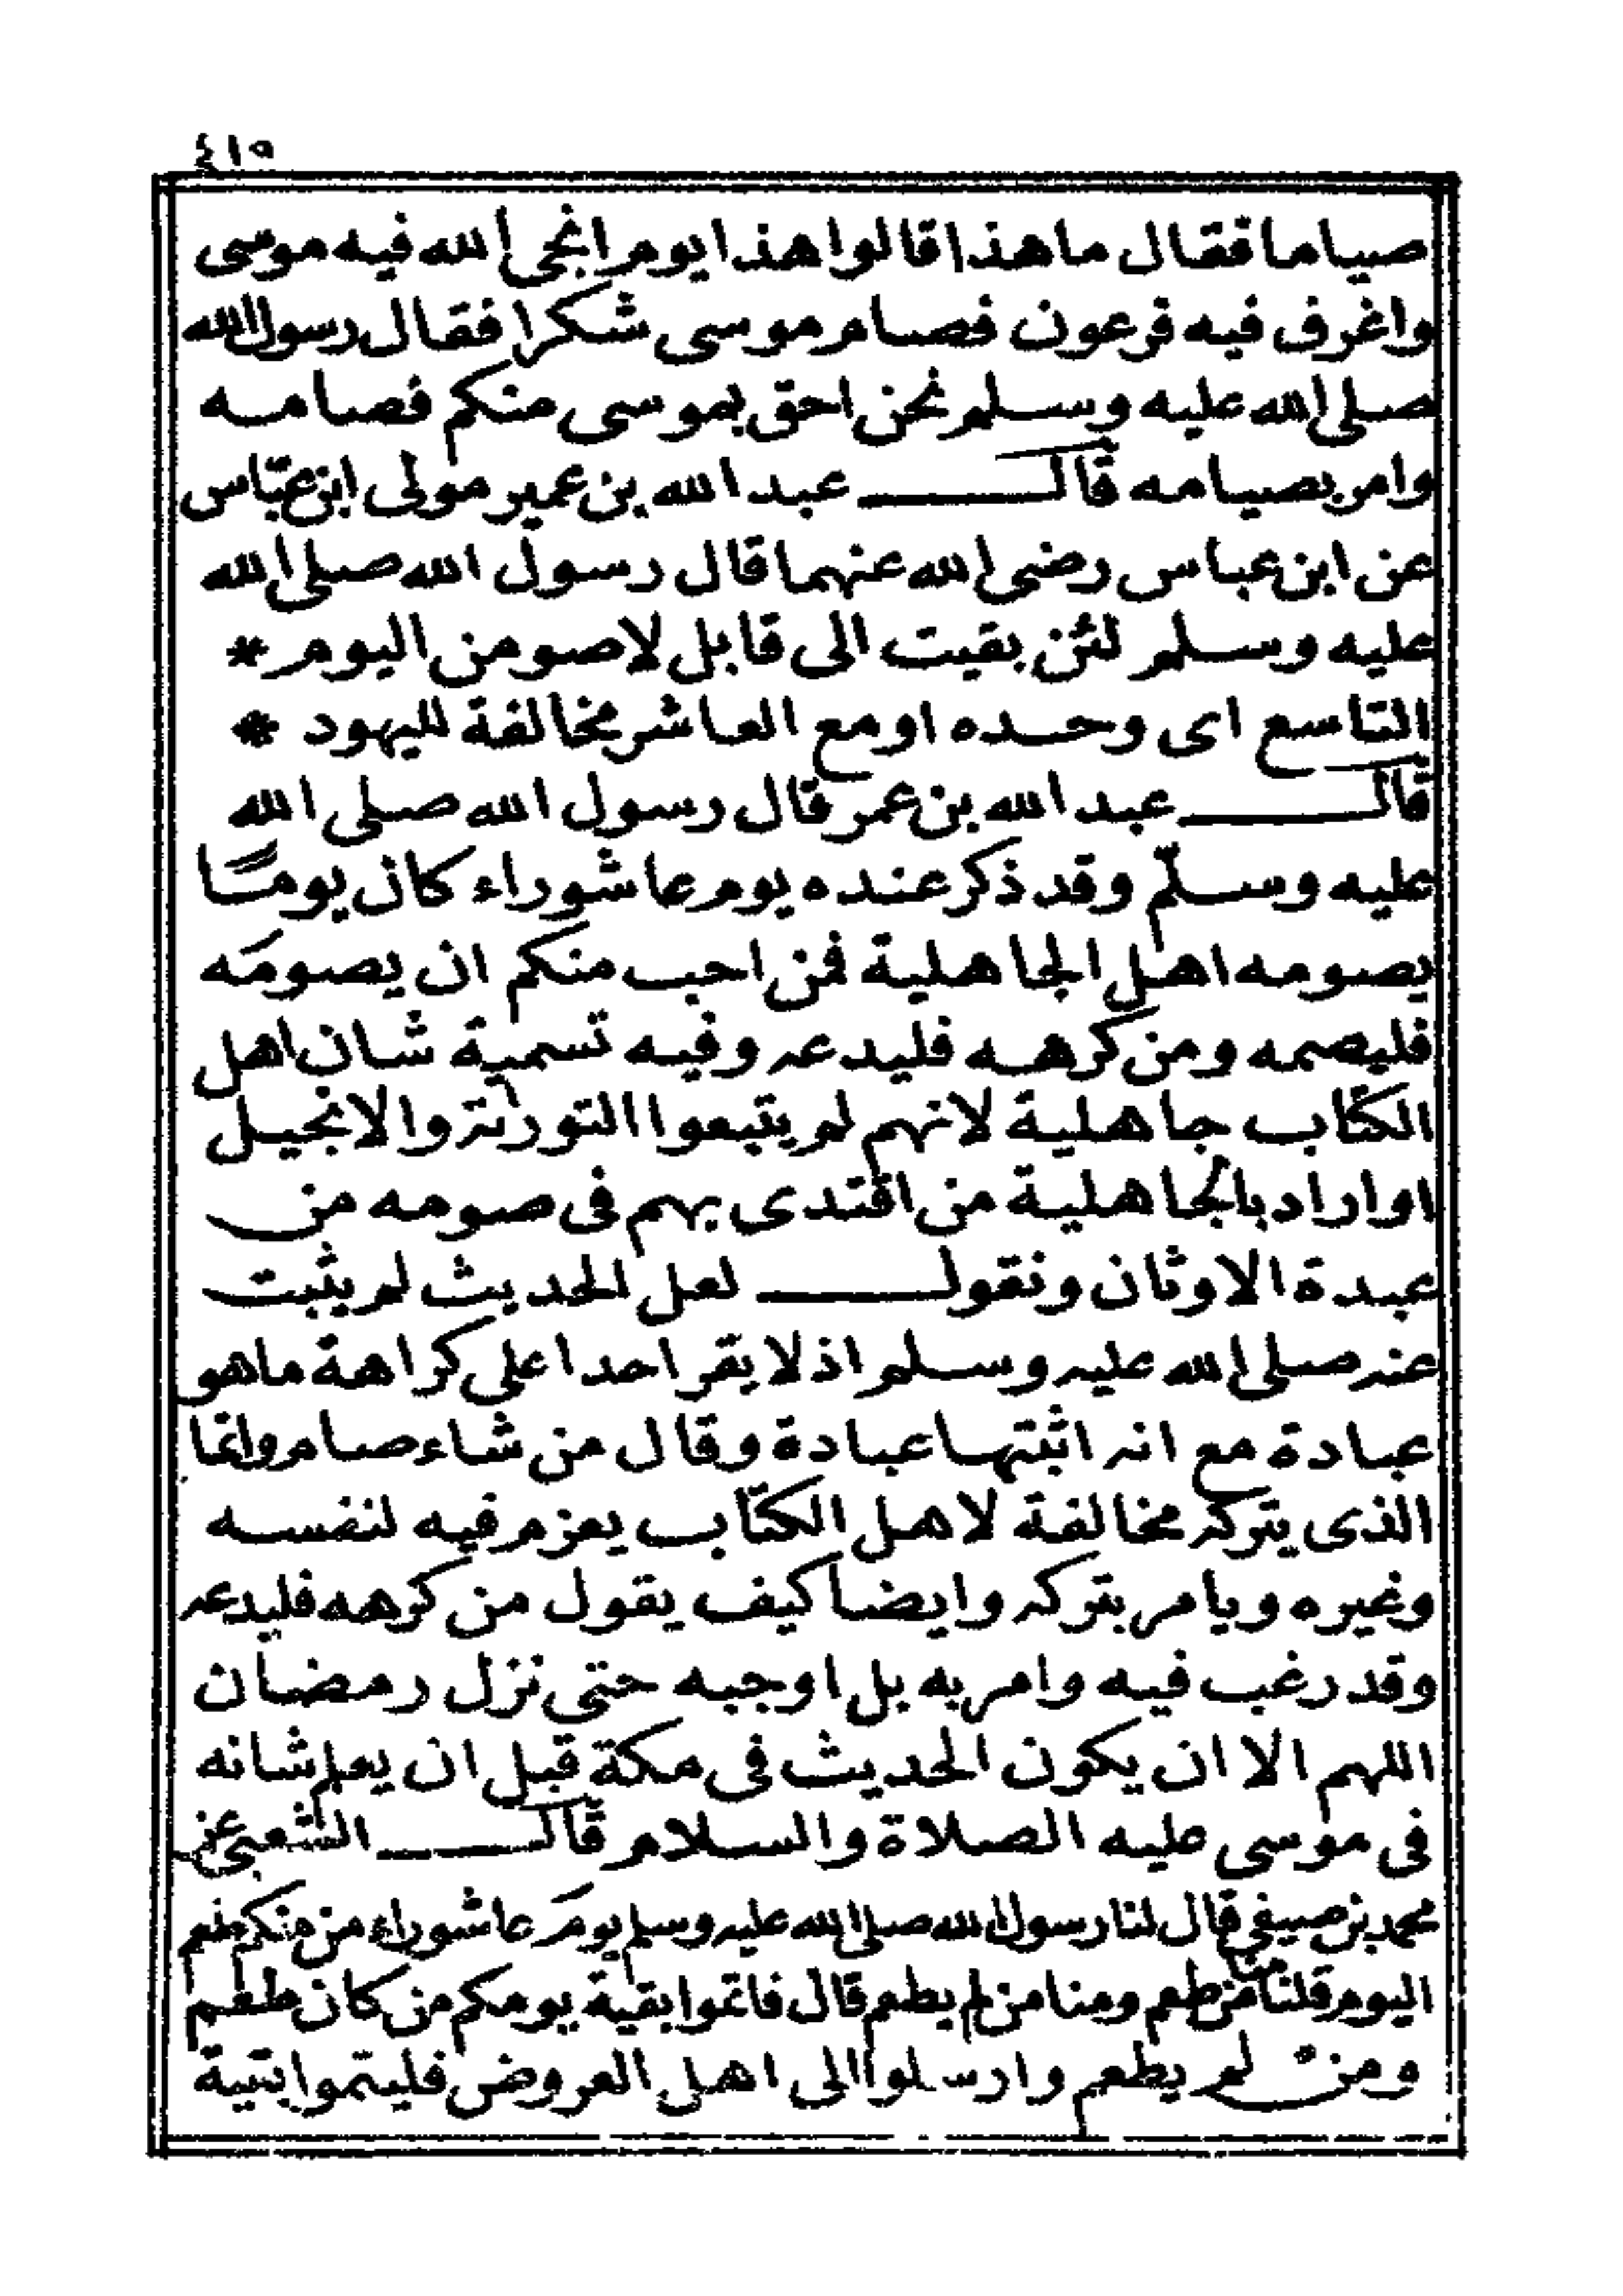 ٤١٥
صياما فقال ما هذا قالوا هذا يوم انجى الله فيه موسى
واغرف فيه فرعون فصام موسى شكرا فقال رسول الله
صلى الله عليه وسلم نحن احق بموسى منكم فصامه
وامر بصيامه قال عبد الله بن عمير مولى ابن عبّاس
عن ابن عباس رضى الله عنهما قال رسول الله صلى الله
عليه وسلم لئن بقيت الى قابل لاصومن اليوم *
التاسع اى وحده او مع العاشر مخالفة لليهود *
قال عبد الله بن عمر قال رسول الله صلى الله
عليه وسلّم وقد ذكر عنده يوم عاشوراء كان يومًا
يصومه اهل الجاهلية فمن احب منكم ان يصومَه
فليصمه ومن كرهه فليدعه وفيه تسمية شان اهل
الكتاب جاهلية لانهم لم يتبعوا التورٰىة والانجيل
او اراد بالجاهلية من اقتدى بهم فى صومه من
عبدة الاوثان ونقول لعل الحديث لم يثبت
عنه صلى الله عليه وسلم اذ لا يقر احدا على كراهة ما هو
عبادة مع انه اثبتها عبادة وقال من شاء صام وانما
الذى يتركه مخالفة لاهل الكتاب يعزم فيه لنفسه
وغيره ويامر بتركه وايضا كيف يقول من كرهه فليدعه
وقد رغب فيه وامر به بل اوجبه حتى نزل رمضان
اللهم الا ان يكون الحديث فى مكة قبل ان يعلم شانه
فى موسى عليه الصلاة والسلام قال الشعبى عن
محمد بن صيفى قال لنا رسول الله صلى الله عليه وسلم يومَ عاشوراء من منكم طعم
اليوم قلنا منا من طعم ومنا من لم يطعم قال فاتموا بقية يومكم من كان طعم
ومن لم يطعم وارسلوا الى اهل العروض فليتموا بقية